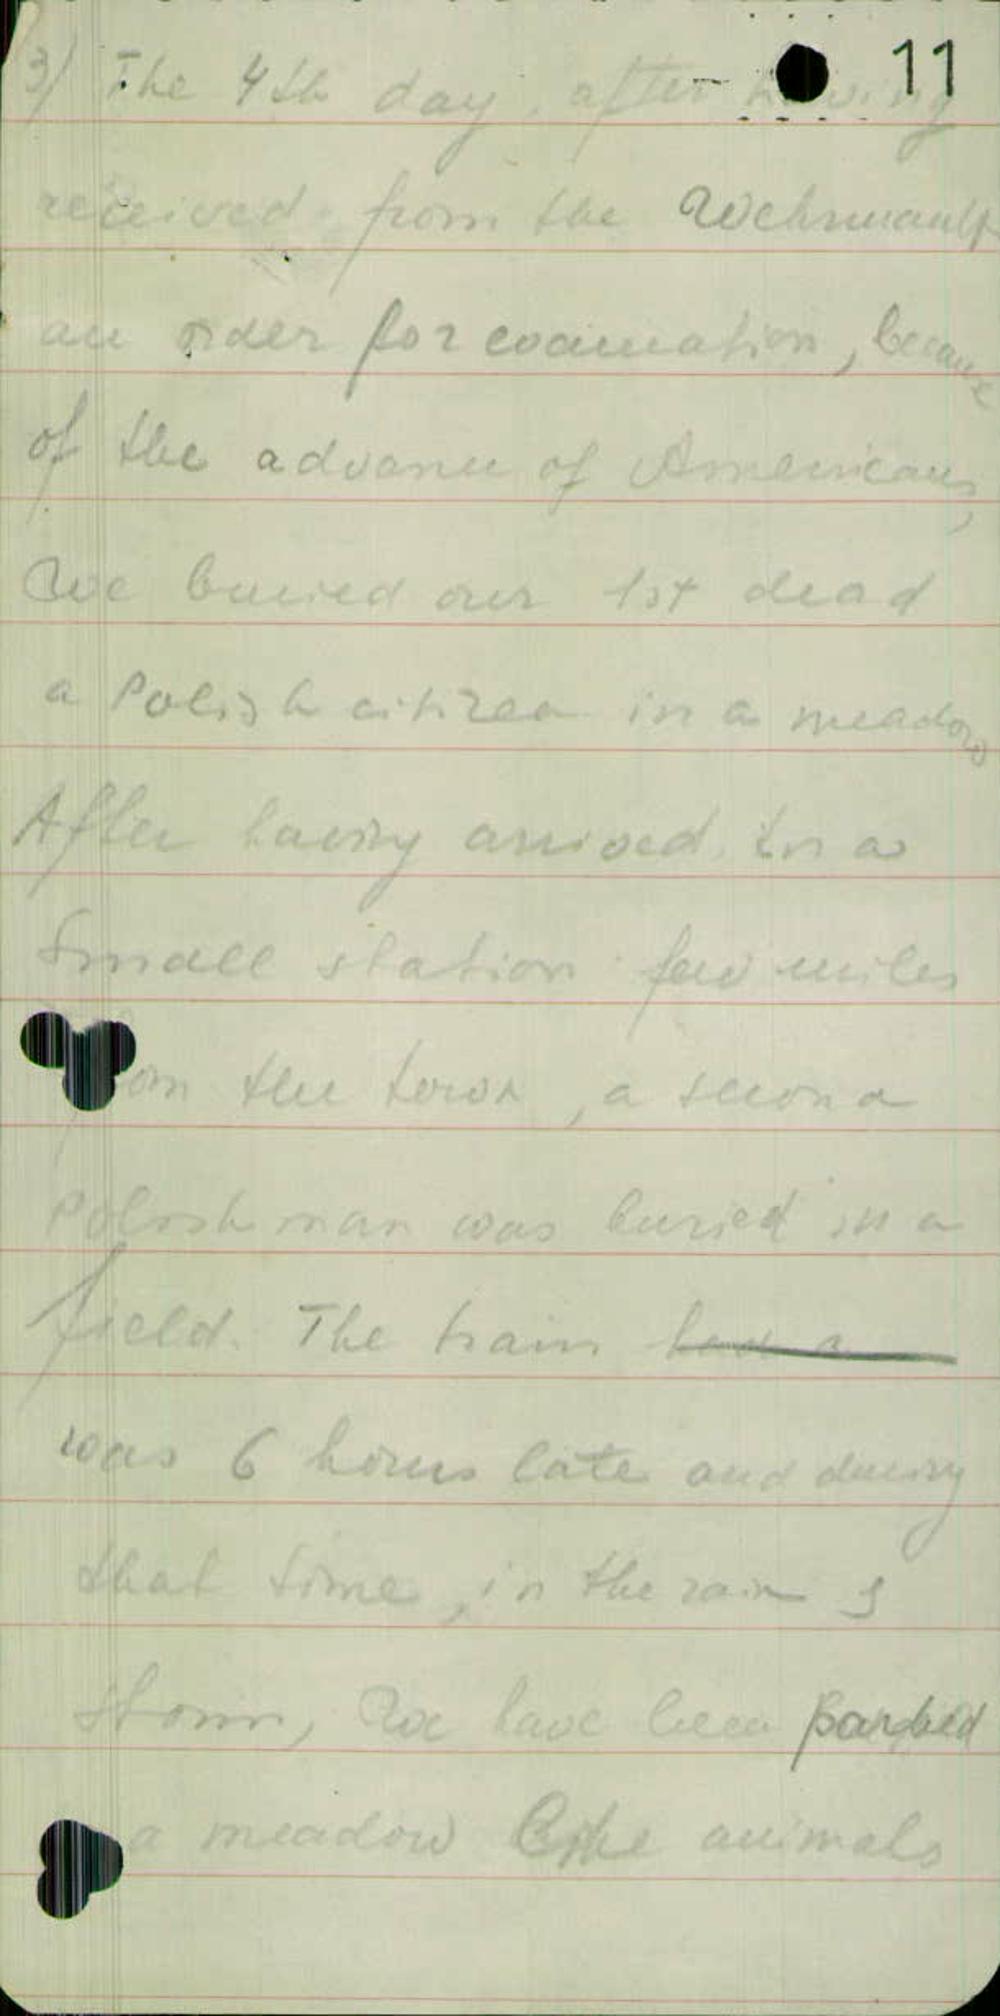 11
3) The 4th day, after having
received from the Wehrmacht
an order for evacuation, because
of the advance of Americans,
We buried our 1st dead
a Polish citizen in a meadow
After having arrived in a
small station few miles
from the town, a second
Polish man was buried in a
field. The train had a
was 6 hours late and during
that time, in the rain &
storm, we have been parked
a meadow like animals